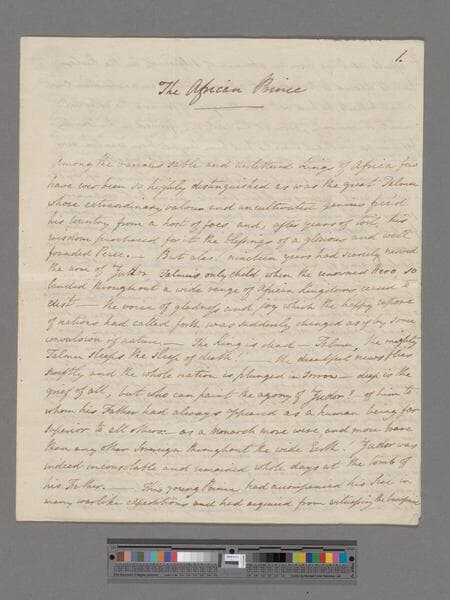 1.
The African Prince
Among the various sable and untutored Kings of Africa few
have ever been so highly distinguished as was the great Talmu
whose extraordinary valour and uncultivated genius freed
his country from a host of foes and, after years of toil, his
wisdom purchased for it the blessings of a glorious and well
founded Peace. — But alas! nineteen years had scarcely nerved
the arm of Talmu's only child when the renowned Hero so
landed throughout a wide range of African Kingdoms ceased to
exist — the voice of gladness and joy which the happy repose
of nations had called forth was suddenly changed as if by some
convulsion of nature — The King is dead — Talmu, the mighty
Talmu sleeps the sleep of death! — the dreadful news flies
swiftly and the whole nation is plunged in sorrow — deep is the
grief of all, but who can paint the agony of Zudor! of him to
whom his Father had always appeared as a human being far
superior to all others — as a Monarch more wise and more brave
than any other Sovereign throughout the wide Earth. Zudor was
indeed inconsolable and remained whole days at the tomb of
his Father. — This young Prince had accompanied his Sire in
many warlike expeditions and had acquired from witnessing the